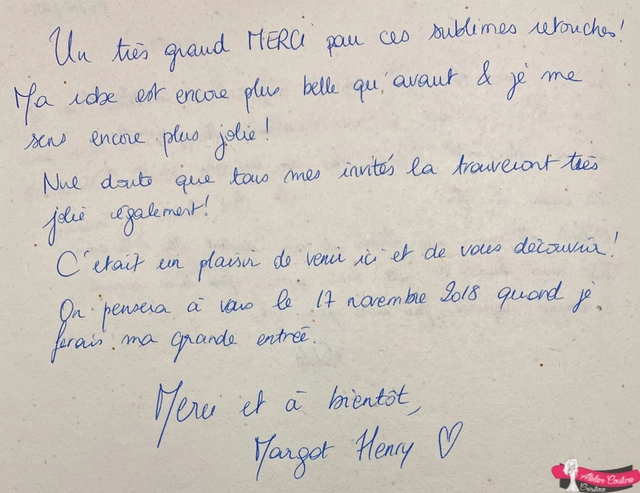 Un très grand MERCI pour ces sublimes retouches!
Ma robe est encore plus belle qu'avant & je me
sens encore plus jolie!
Nul doute que tous mes invités la trouveront très
jolie également!
C'était un plaisir de venir ici et de vous découvrir!
On pensera à vous le 17 novembre 2018 quand je
ferais ma grande entrée.
Merci et à bientôt,
Margot Henry ♡
Atelier Couture